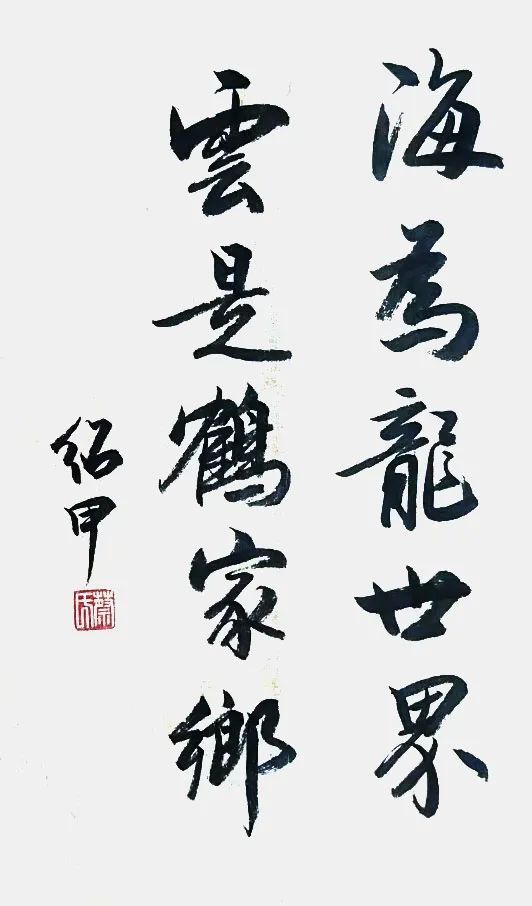 海為龍世界
雲是鶴家鄉
紹甲
蔡氏